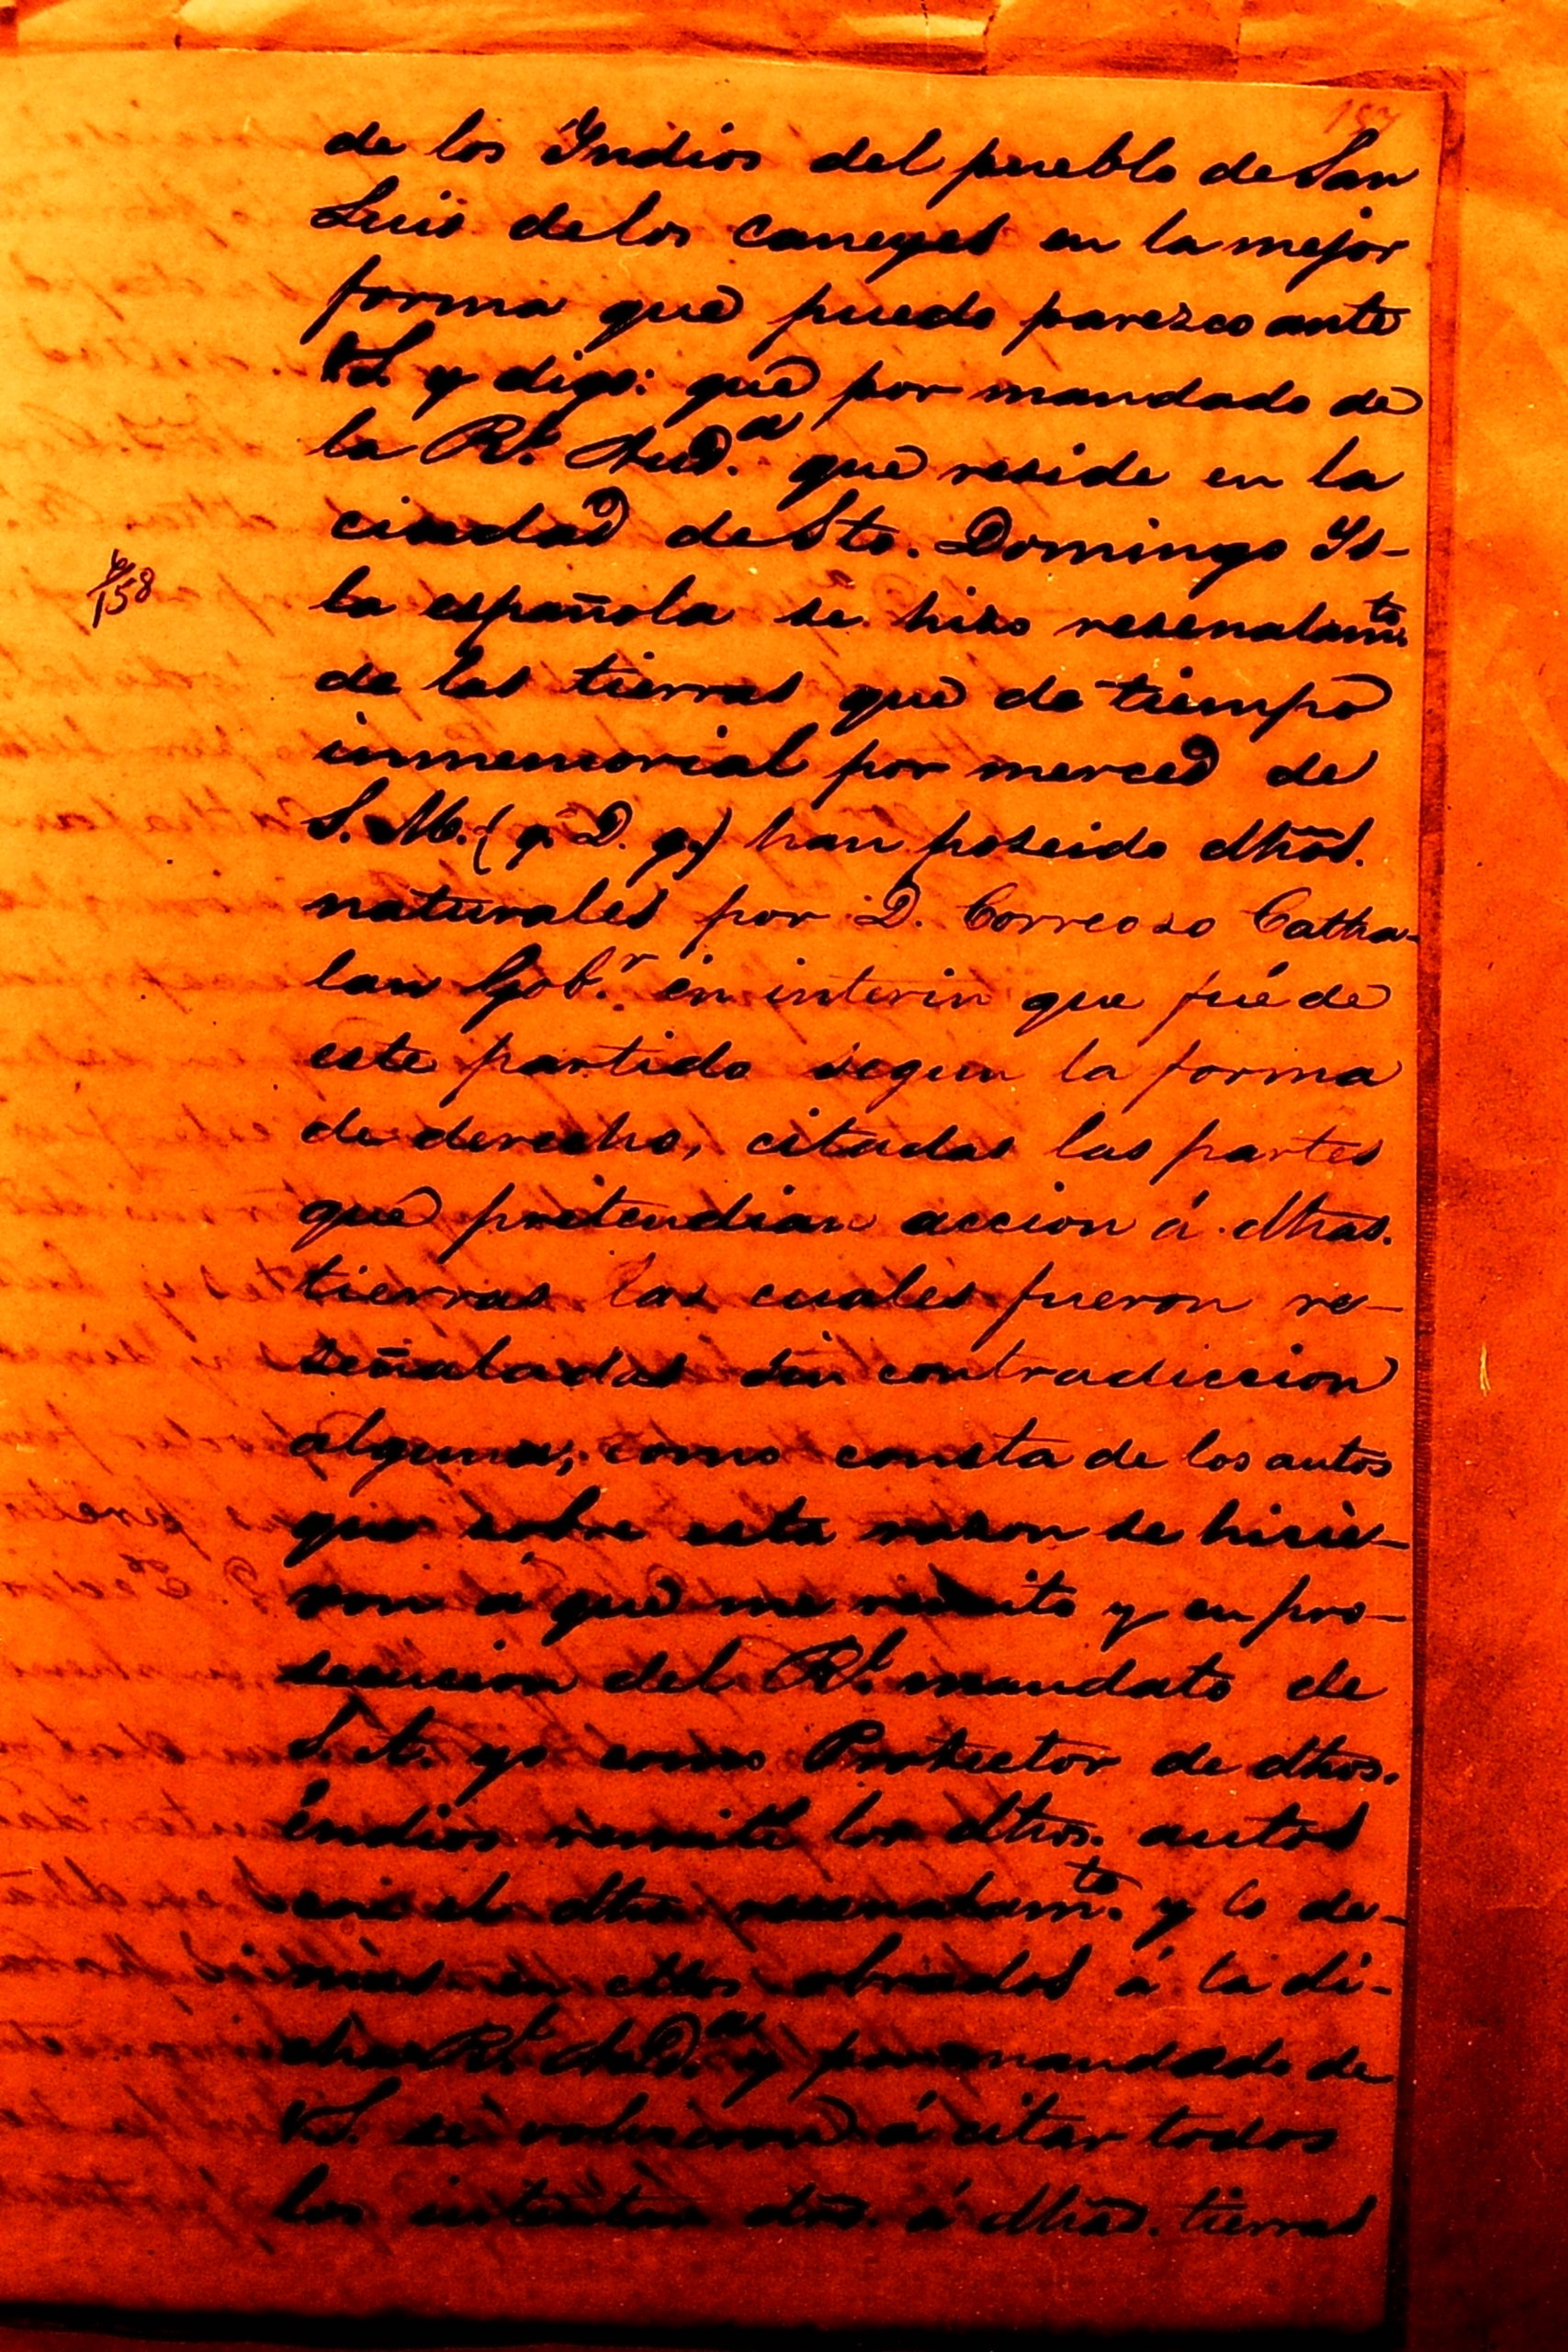 157
de los Yndios del pueblo de San
Luis de los Caneyes en la mejor
forma que puedo parezco ante
VS. y digo: que por mandado de
la Rl. Aud.a que reside en la
ciudad de Sto. Domingo Ys-
la española se hizo resenalamto.
de las tierras que de tiempo
inmemorial por merced de
S. M. (q. D. g.) han poseido dhos.
naturales por D. Correoso Catha-
lan Gob.r en interin que fué de
este partido segun la forma
de derecho, citadas las partes
que pretendian accion á dhas.
tierras las cuales fueron re-
señaladas sin contradiccion
alguna, como consta de los autos
que sobre esta razon se hicie-
ron á que me remito y en pro-
secucion del Rl. mandato de
S. A. yo como Protector de dhos.
indios remití los dhos. autos
con el dho. resenalamto. y lo de-
mas en ellos obrados á la di-
cha Rl. Aud.a y por mandado de
VS. se volvieron á citar todos
los dros. á dhas. tierras
6/158